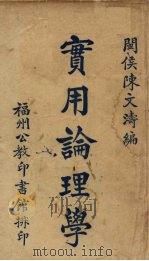 閩侯陳文濤編
實用論理學
福州公教印書館排印
www.mtoou.info